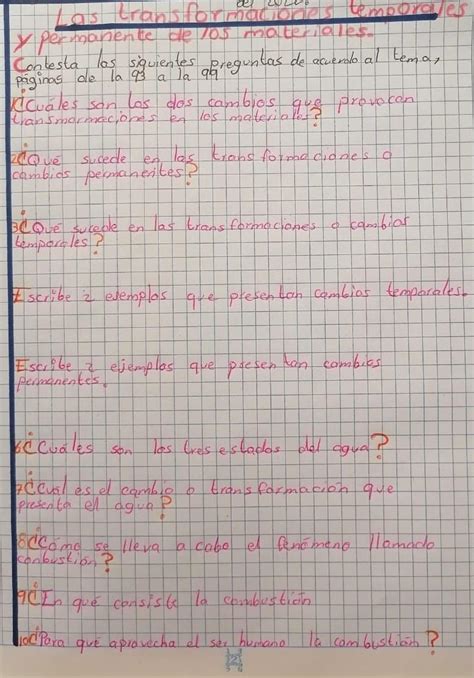 Las transformaciones temporales
y permanente de los materiales.
Contesta las siguientes preguntas de acuerdo al tema,
páginas de la 93 a la 99
1¿Cuáles son los dos cambios que provocan
transmormaciones en los materiales?
2¿Qué sucede en las transformaciones o
cambios permanentes?
3¿Qué sucede en las transformaciones o cambios
temporales?
Escribe 2 ejemplos que presentan cambios temporales.
Escribe 2 ejemplos que presentan cambios
permanentes.
6¿Cuáles son los tres estados del agua?
7¿Cuál es el cambio o transformación que
presenta el agua?
8¿Cómo se lleva a cabo el fenómeno llamado
conbustión?
9¿En qué consiste la combustión
10¿Para qué aprovecha el ser humano la combustión?